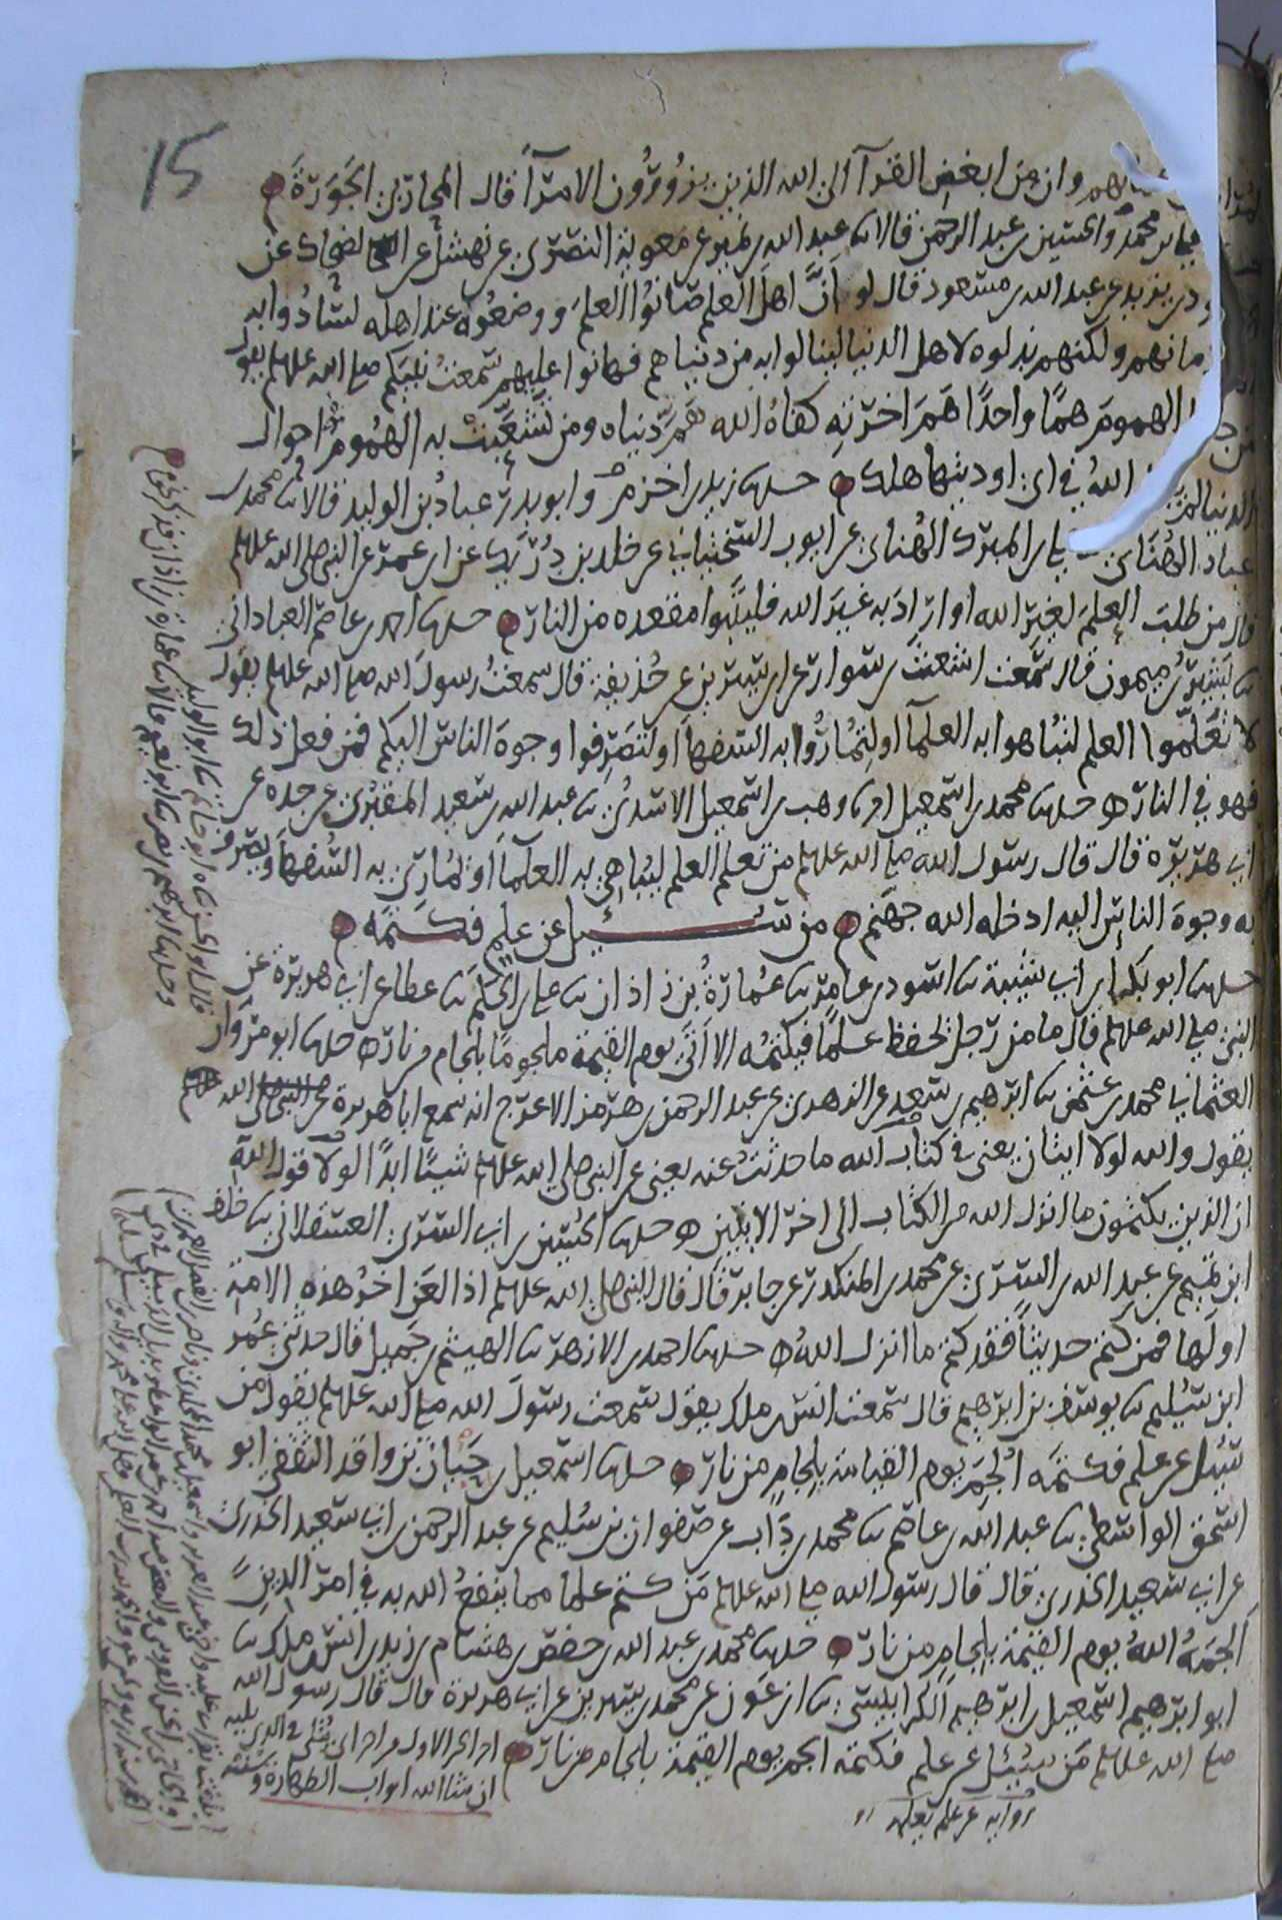 15
وان من ابغض القرآ الى الله الذين يزورون الامرآ قال المحاربي الجورة
بن محمد والحسين بن عبد الرحمن قالا ثنا عبد الله بن نمير عن معوية النصري عن نهشل عن الضحاك عن
بن يزيد عن عبد الله بن مسعود قال لو ان اهل العلم صانوا العلم ووضعوه عند اهله لسادوا به
زمانهم ولكنهم بذلوه لاهل الدنيا لينالوا به من دنياهم فهانوا عليهم سمعت نبيكم صلى الله عليه وسلم يقول
من الهموم هما واحدا هم اخرته كفاه الله هم دنياه ومن تشعبت به الهموم احوال
الدنيا لم الله في اى اوديتها هلك حدثنا زيد بن اخزم وابو بدر عباد بن الوليد قالا ثنا محمد بن
عباد الهنائى ثنا على بن المبرك الهنائى عن ايوب السختيانى عن خلد بن دريك عن ابن عمر عن النبى صلى الله عليه وسلم
قال من طلب العلم لغير الله او اراد به غير الله فليتبوا مقعده من النار حدثنا احمد بن عاصم العبادانى
ثنا بشير بن ميمون قال سمعت اشعث بن سوار عن ابن سيرين عن حذيفة قال سمعت رسول الله صلى الله عليه وسلم يقول
لا تعلموا العلم لتباهوا به العلمآ او لتماروا به السفهآ او لتصرفوا وجوه الناس اليكم فمن فعل ذلك
فهو في النار حدثنا محمد بن اسمعيل ثنا وهب بن اسمعيل الاسدى ثنا عبد الله بن سعيد المقبرى عن جده عن
ابى هريرة قال قال رسول الله صلى الله عليه وسلم من تعلم العلم ليباهى به العلمآ او يمارى به السفهآ ويصرف
به وجوه الناس اليه ادخله الله جهنم من سئيل عن علم فكتمه
حدثنا ابو بكر بن ابى شيبة ثنا اسود بن عامر ثنا عمارة بن زاذان ثنا على بن الحكم ثنا عطا عن ابى هريرة عن
النبى صلى الله عليه وسلم قال ما من رجل يحفظ علما فيكتمه الا اتى يوم القيمة ملجوما بلجام من نار حدثنا ابو مروان
العثمانى محمد بن عثمن ثنا ابرهيم بن سعد عن الزهرى عن عبد الرحمن بن هرمز الاعرج انه سمع ابا هريرة
يقول والله لولا ايتان يعنى في كتاب الله ما حدثت عنه يعنى عن النبى صلى الله عليه وسلم شيئا ابدا لولا قول الله
ان الذين يكتمون ما انزل الله من الكتاب الى اخر الايتين حدثنا الحسين بن ابى السرى العسقلانى ثنا خلف
ابن تميم عن عبد الله بن السرى عن محمد بن المنكدر عن جابر قال قال النبى صلى الله عليه وسلم اذا لعن اخر هذه الامة
اولها فمن كتم حديثا فقد كتم ما انزل الله حدثنا احمد بن الازهر ثنا الهيثم بن جميل قال حدثنى عمر
ابن سليم ثنا يوسف بن ابرهيم قال سمعت انس بن ملك يقول سمعت رسول الله صلى الله عليه وسلم يقول من
سئل عن علم فكتمه الجم يوم القيامة بلجام من نار حدثنا اسمعيل بن حبان بن واقد الثقفى ابو
اسحق الواسطى ثنا عبد الله بن عاصم ثنا محمد بن داب عن صفوان بن سليم عن عبد الرحمن بن ابى سعيد الخدرى
عن ابى سعيد الخدرى قال قال رسول الله صلى الله عليه وسلم من كتم علما مما ينفع الله به في امر الدين
الجمه الله يوم القيمة بلجام من نار حدثنا محمد بن عبد الله بن حفص بن هشام بن زيد بن انس بن ملك ثنا
ابو ابرهيم اسمعيل بن ابرهيم الكرابيسى ثنا ابن عون عن محمد بن سيرين عن ابى هريرة قال قال رسول الله
صلى الله عليه وسلم من سئل عن علم فكتمه الجم يوم القيمة بلجام من نار اخر الجز الاول يتلى في الذى يليه
ان شا الله ابواب الطهارة
رواية عن علم يعلمه
قال ابو الحسن ثنا ابو حاتم ثنا ابو الوليد
وحدثنا ابرهيم بن نصر ثنا ابو نعيم قالا ثنا عمارة بن زاذان فذكر نحوه